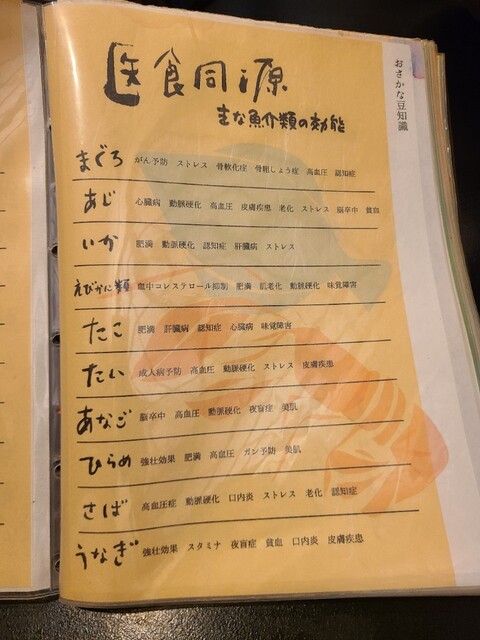 おさかな豆知識
医食同源
主な魚介類の効能
まぐろ がん予防 ストレス 骨軟化症 骨粗しょう症 高血圧 認知症
あじ 心臓病 動脈硬化 高血圧 皮膚疾患 老化 ストレス 脳卒中 貧血
いか 肥満 動脈硬化 認知症 肝臓病 ストレス
えびかに類 血中コレステロール抑制 肥満 肌老化 動脈硬化 味覚障害
たこ 肥満 肝臓病 認知症 心臓病 味覚障害
たい 成人病予防 高血圧 動脈硬化 ストレス 皮膚疾患
あなご 脳卒中 高血圧 動脈硬化 夜盲症 美肌
ひらめ 強壮効果 肥満 高血圧 ガン予防 美肌
さば 高血圧症 動脈硬化 口内炎 ストレス 老化 認知症
うなぎ 強壮効果 スタミナ 夜盲症 貧血 口内炎 皮膚疾患